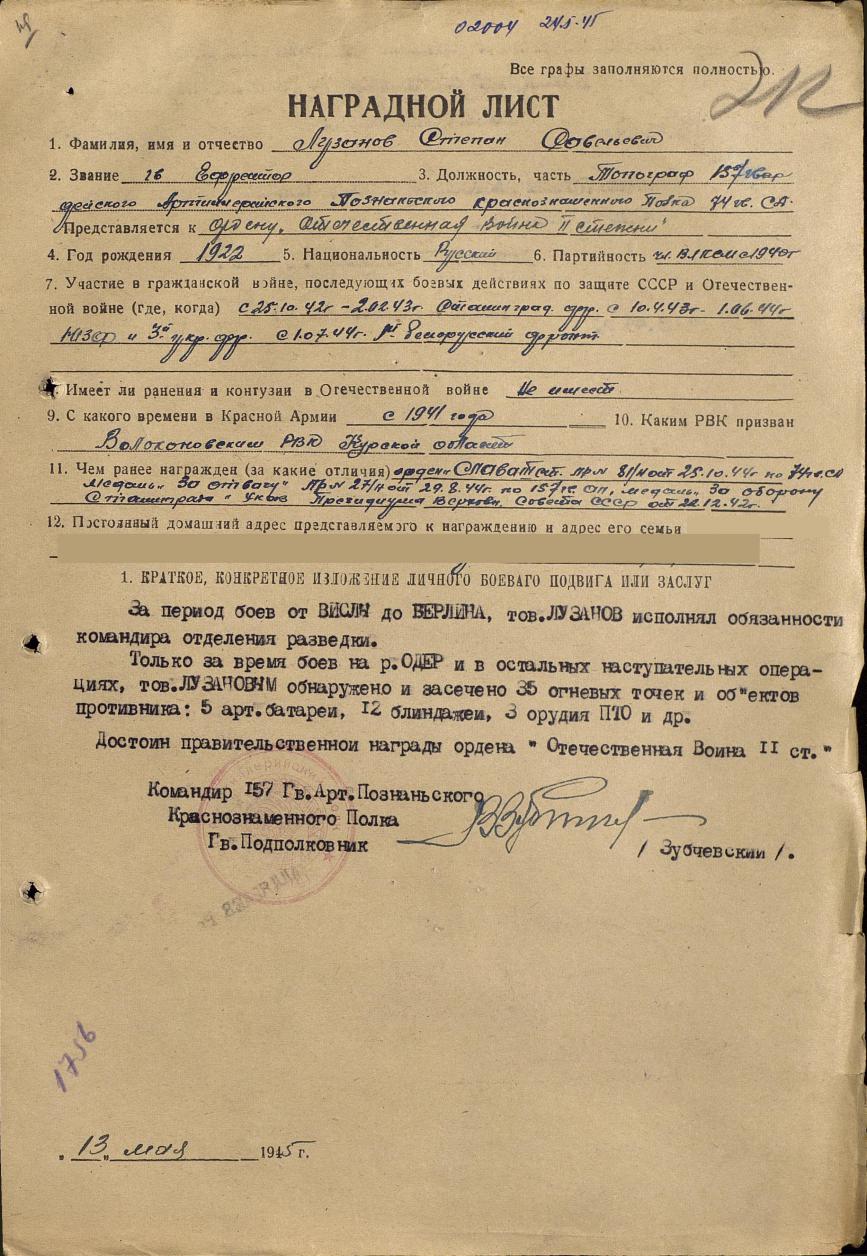 02004 24.5.45
Все графы заполняются полностью.
212
НАГРАДНОЙ ЛИСТ
1. Фамилия, имя и отчество Лузанов Степан Савельевич
2. Звание гв Ефрейтор 3. Должность, часть Топограф 157 гвар
дейского Артиллерийского Познаньского краснознаменного Полка 74 гв. СД.
Представляется к Ордену „Отечественная Война II степени"
4. Год рождения 1922 5. Национальность Русский 6. Партийность чл. ВЛКСМ с 1940г
7. Участие в гражданской войне, последующих боевых действиях по защите СССР и Отечествен-
ной войне (где, когда) с 25.10.42г - 2.02.43г. Сталинград. фр. с 10.4.43г - 1.06.44г
ЮЗФ и 3й укр. фр. с 1.07.44г. 1й Белорусский фронт.
Имеет ли ранения и контузии в Отечественной войне Не имеет
9. С какого времени в Красной Армии с 1941 года 10. Каким РВК призван
Волоконовским РВК Курской области
11. Чем ранее награжден (за какие отличия) орден „СЛАВА III ст. пр № 81/н от 25.10.44г по 74 гв. СД
Медаль „За отвагу" Пр № 27/н от 29.8.44г. по 157 гв. АП, медаль „За оборону
Сталинграда" Указ Президиума Верховн. Совета СССР от 22.12.42г.
12. Постоянный домашний адрес представляемого к награждению и адрес его семьи
1. КРАТКОЕ, КОНКРЕТНОЕ ИЗЛОЖЕНИЕ ЛИЧНОГО БОЕВАГО ПОДВИГА ИЛИ ЗАСЛУГ
За период боев от ВИСЛЫ до БЕРЛИНА, тов.ЛУЗАНОВ исполнял обязанности
командира отделения разведки.
Только за время боев на р.ОДЕР и в остальных наступательных опера-
циях, тов.ЛУЗАНОВЫМ обнаружено и засечено 35 огневых точек и об"ектов
противника: 5 арт.батареи, 12 блиндажеи, 3 орудия ПТО и др.
Достоин правительственнои награды ордена " Отечественная Воина II ст."
Командир 157 Гв.Арт.Познаньского
Краснознаменного Полка
Гв.Подполковник / Зубчевскии /.
1756
„13„ мая 1945 г.